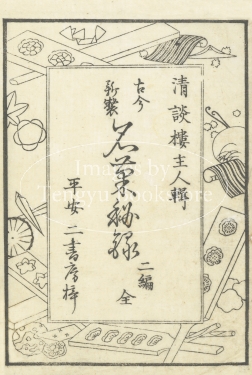 清談樓主人輯
古今
新製
名菓秘録
二編
全
平安 二書房梓